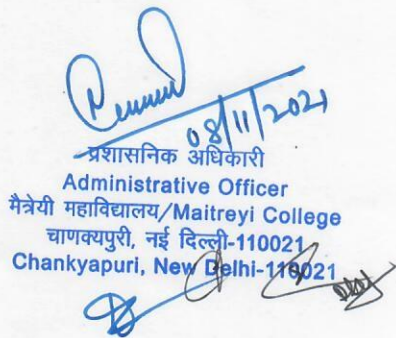 08/11/2021
प्रशासनिक अधिकारी
Administrative Officer
मैत्रेयी महाविद्यालय/Maitreyi College
चाणक्यपुरी, नई दिल्ली-110021
Chankyapuri, New Delhi-110021